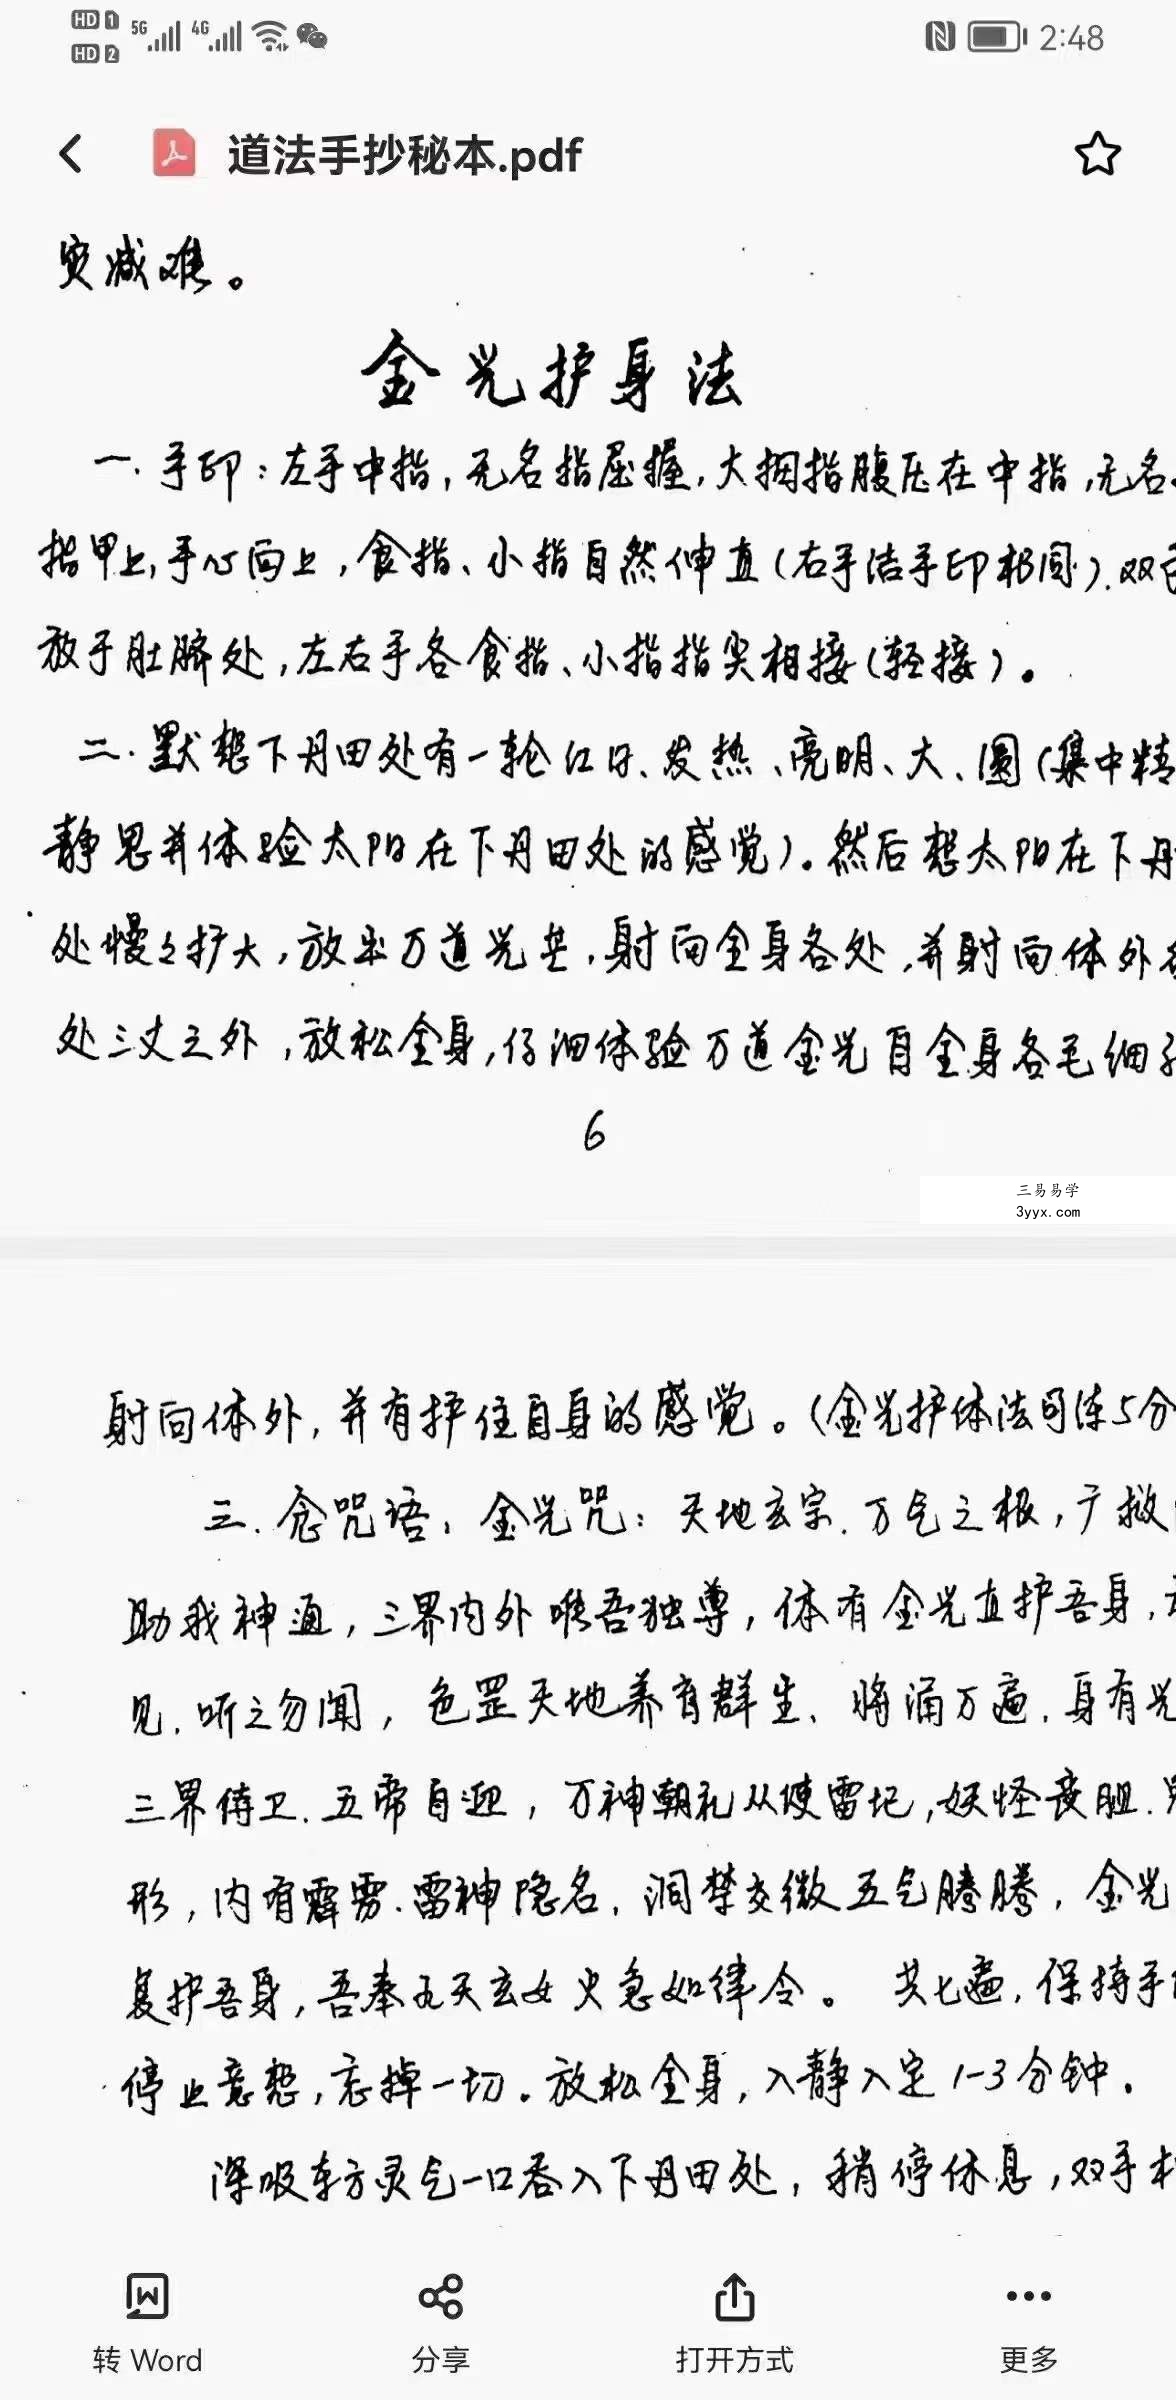 HD 1 5G 4G 2:48
HD 2
道法手抄秘本.pdf
灾减难。
金光护身法
一.手印：左手中指，无名指屈握，大拇指腹压在中指，无名
指甲上，手心向上，食指、小指自然伸直（右手洁手印相同）.双
放于肚脐处，左右手各食指、小指指尖相接（轻接）。
二.默想下丹田处有一轮红日、发热、亮明、大、圆（集中精
静思并体验太阳在下丹田处的感觉）。然后想太阳在下丹
处慢々扩大，放出万道光芒，射向全身各处，并射向体外
处三丈之外，放松全身，仔细体验万道金光自全身各毛细
6
三易易学
3yyx.com
射向体外，并有护住自身的感觉。（金光护体法可练5分
三.念咒语，金光咒：天地玄宗.万气之根，广救
助我神通，三界内外唯吾独尊，体有金光直护吾身，
见.听之勿闻，包罡天地养育群生、将涌万遍.身有光
三界侍卫.五帝自迎，万神朝礼从使雷记，妖怪丧胆.
形，内有霹雳.雷神隐名，洞禁交微五气腾腾，金光
复护吾身，吾奉九天玄女火急如律令。 共七遍，保持手
停止意想，忘掉一切。放松全身，入静入定1-3分钟。
深吸东方灵气一口吞入下丹田处，稍停休息，双手
转 Word
分享
打开方式
更多